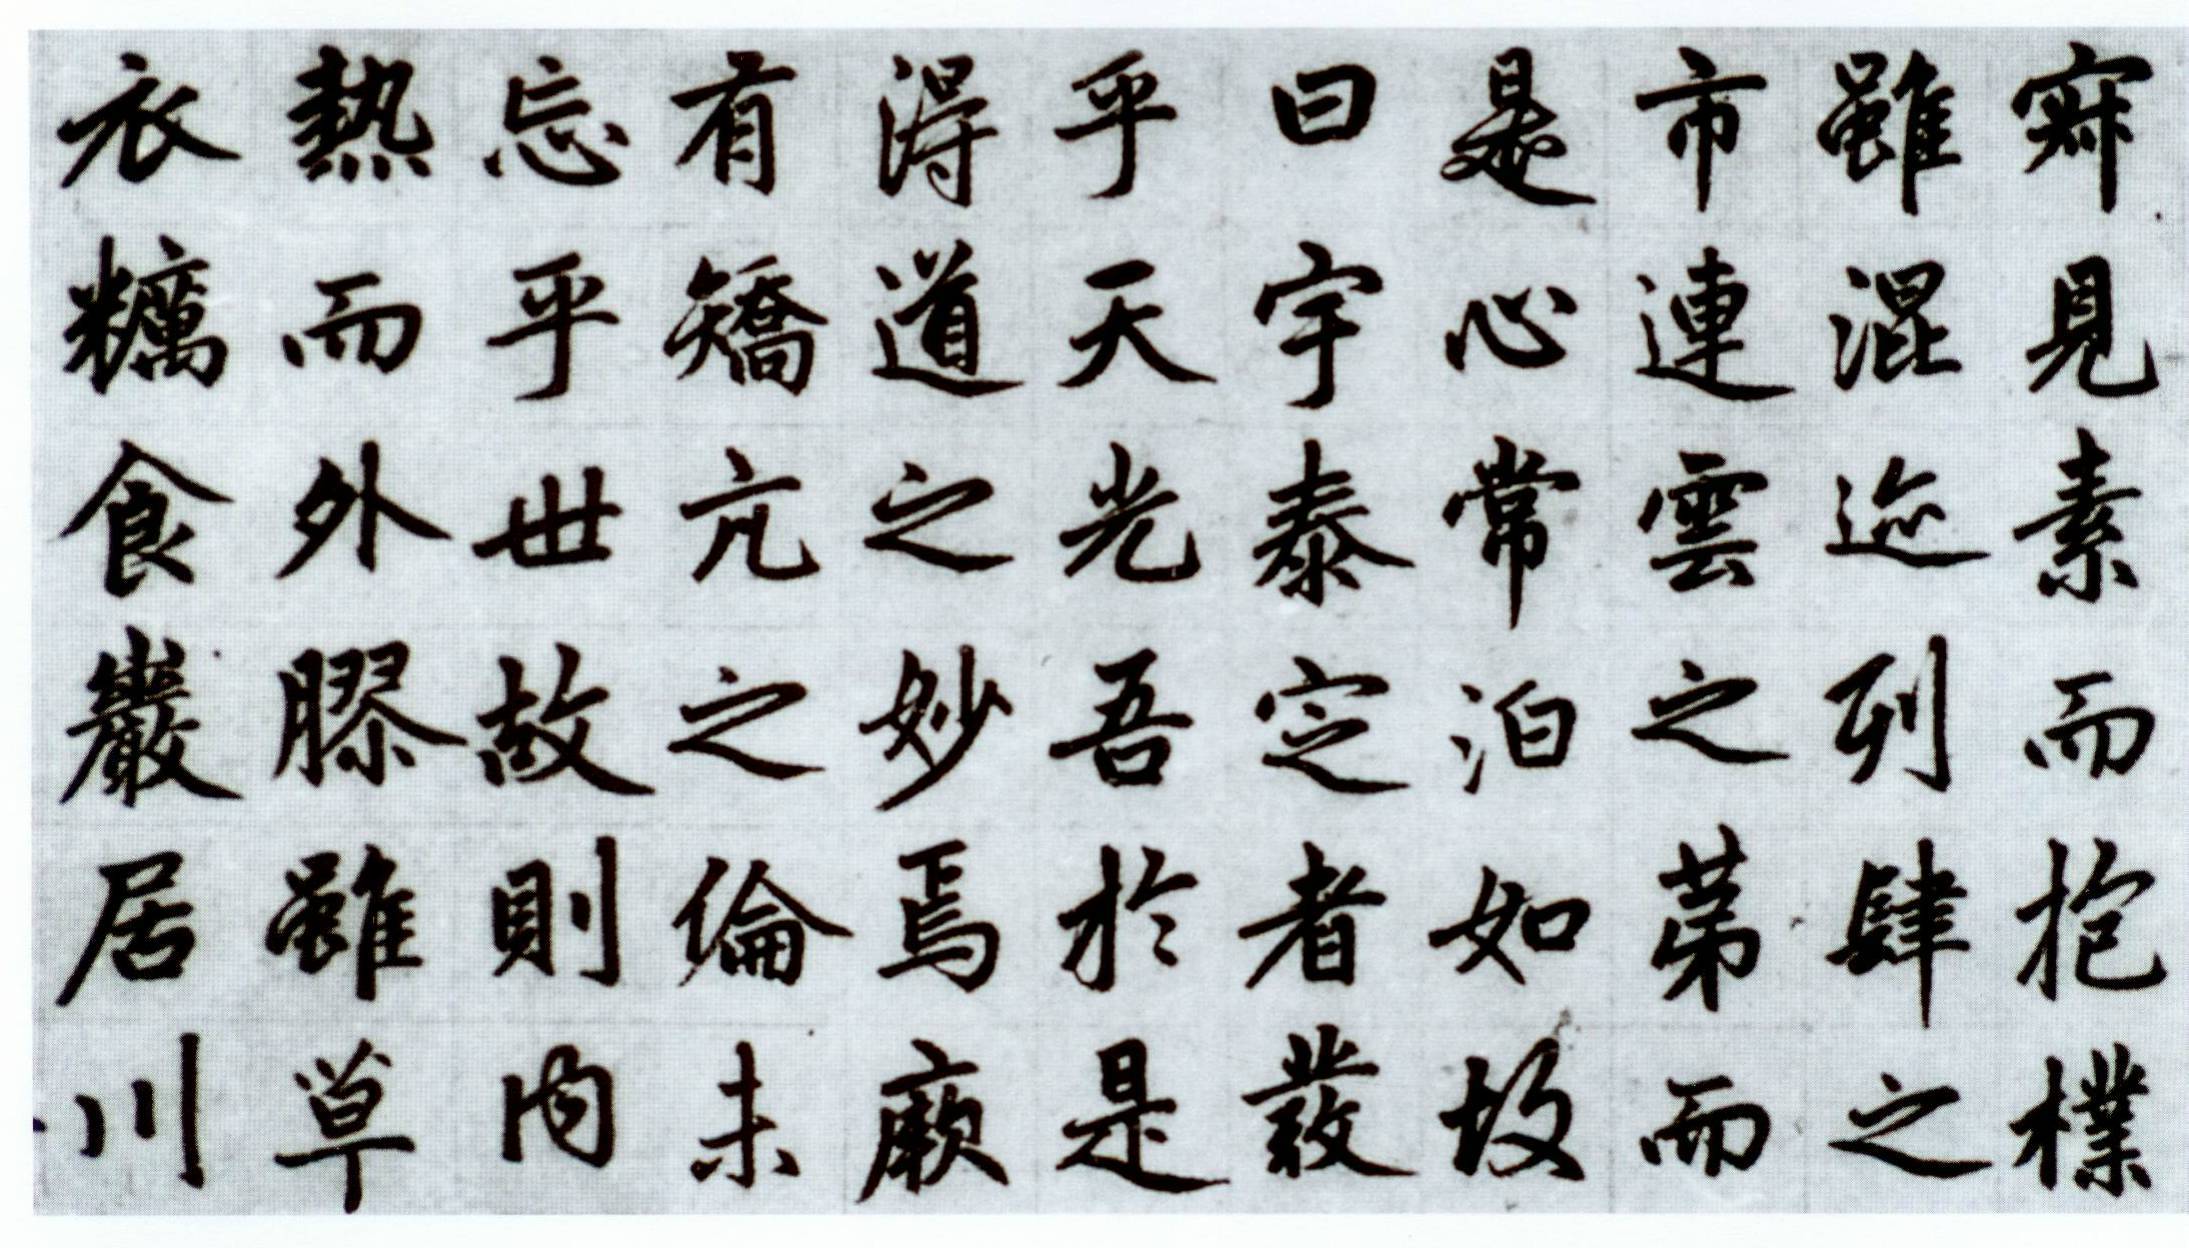 寂見素而抱樸
雖混迹列肆之
市連雲之第而
是心常泊如故
曰宇泰定者發
乎天光吾於是
得道之妙焉厥
有矯亢之倫未
忘乎世故則内
熱而外膠雖草
衣糲食巖居川